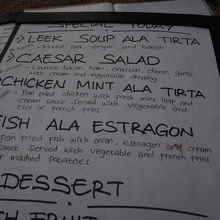 SPECIAL TODAY
LEEK SOUP ALA TIRTA
leek, ginger and bacon
CAESAR SALAD
bacon, crouton, cheese, garlic
with cream and mayonaise dressing
CHICKEN MINT ALA TIRTA
Pan fried chicken with fresh mint, leaf and
cream sauce. Served with vegetable and
rice or french fries
FISH ALA ESTRAGON
Pan fried fish with onion, estragon and cream
sauce. Served with vegetable and french fries
or mashed potatoes.
DESSERT
FRUIT